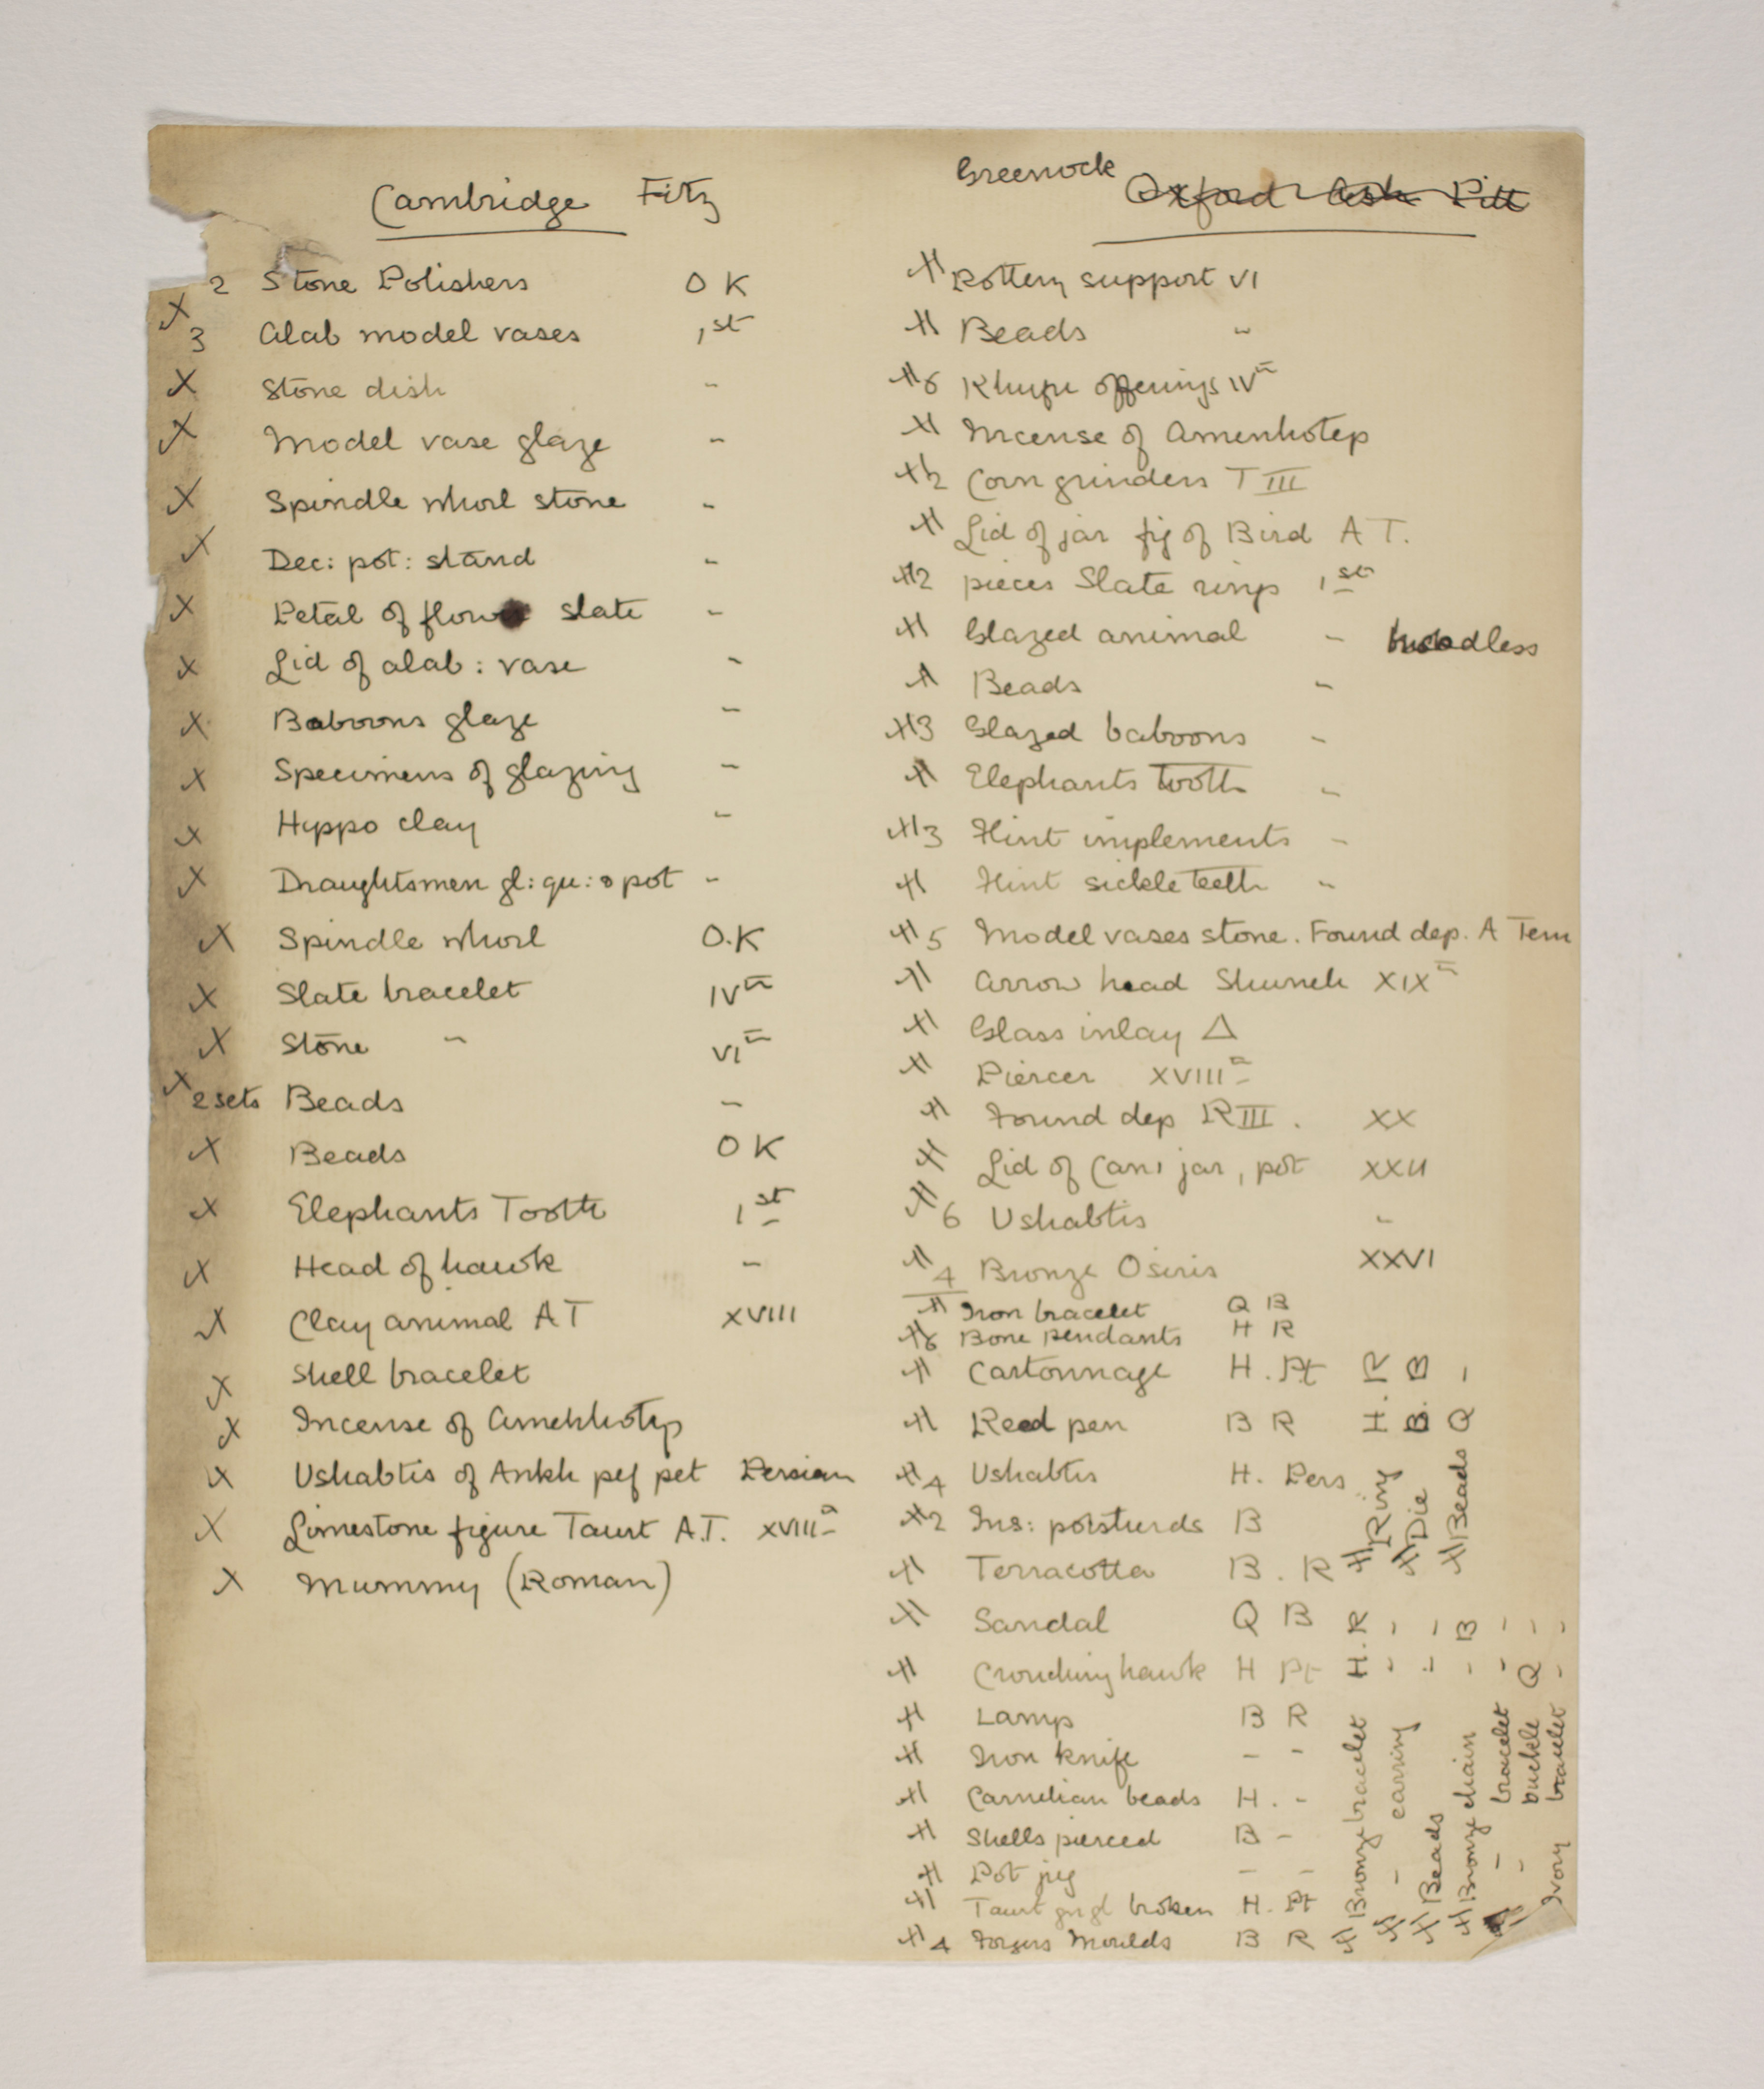 Cambridge Fitz
2 Stone Polishers O K
X 3 Alab model vases 1st
X Stone dish -
X Model vase glaze -
X Spindle whorl stone -
X Dec: pot: stand -
X Petal of flower slate -
X Lid of alab: vase -
X Baboons glaze -
X Specimens of glazing -
X Hyppo clay -
X Draughtsmen gl: qu: & pot -
X Spindle whorl O.K
X Slate bracelet IVth
X Stone - VIth
X 2 sets Beads -
X Beads O K
X Elephants Tooth 1st
X Head of hawk -
X Clay animal A T XVIII
X Shell bracelet
X Incense of Amenhotep
X Ushabtis of Ankh pef pet Persian
X Limestone figure Taurt A.T. XVIIIth
X Mummy (Roman)
Greenock Oxford Ash Pitt
Pottery support VI
Beads "
6 Khufu offerings IVth
Incense of Amenhotep
2 Corn grinders T III
Lid of jar fig of Bird A T.
2 pieces Slate rings 1st
Glazed animal - headless
Beads -
3 Glazed baboons -
Elephants tooth -
3 Flint implements -
Flint sickle teeth -
5 Model vases stone. Found dep. A Tem
Arrow head Shuneh XIXth
Glass inlay Δ
Piercer XVIIIth
Found dep R III. XX
Lid of Can: jar, pot XXII
6 Ushabtis -
4 Bronze Osiris XXVI
Iron bracelet Q B
6 Bone pendants H R
Cartonnage H. Pt
Reed pen B R
4 Ushabtis H. Pers
2 Ins: potsherds B
Terracotta B. R
Sandal Q B
Crouching hawk H Pt
Lamp B R
Iron knife - -
Carnelian beads H. -
Shells pierced B -
Pot jug - -
Taurt broken H. Pt
4 Forgers Moulds B R
Ring H. R
Die B. B
Beads Q -
Bronze bracelet H. R
- earring - -
Beads - -
Bronze chain - B
- bracelet - -
- buckle Q -
Ivory bracelet - -